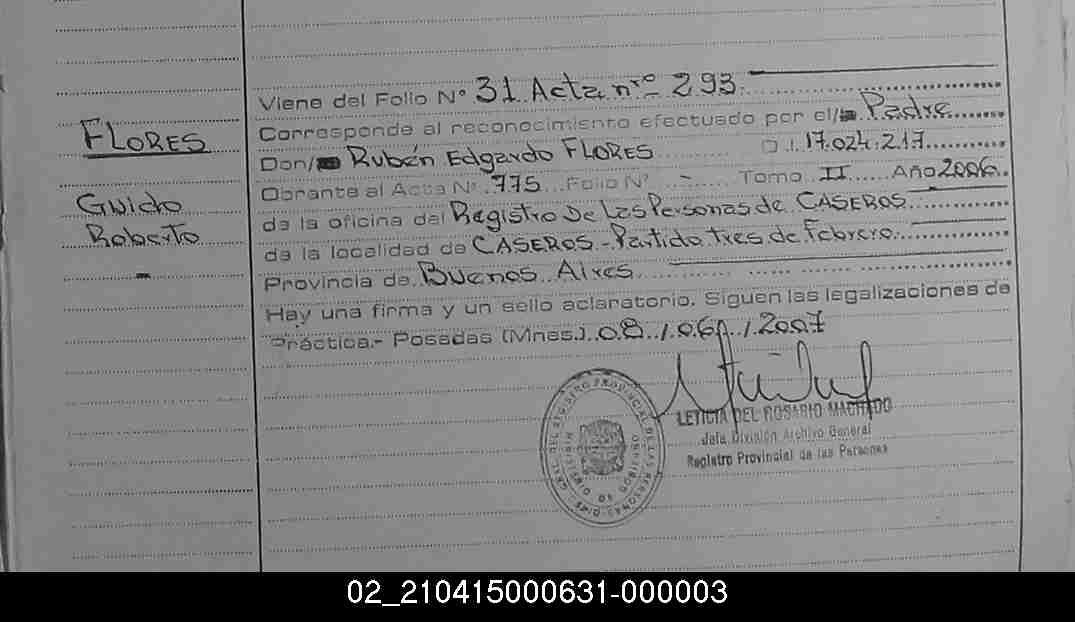 Viene del Folio Nº 31 Acta nrº 293
FLORES
Corresponde al reconocimiento efectuado por el/la Padre
Don/ Rubén Edgardo FLORES D.I. 17.024.217
Obrante al Acta Nº 775 Folio Nº - Tomo II Año 2006
Guido
de la oficina del Registro De Las Personas de CASEROS
Roberto
de la localidad de CASEROS - Partido tres de Febrero
-
Provincia de Buenos Aires
Hay una firma y un sello aclaratorio. Siguen las legalizaciones de
Práctica.- Posadas (Mnes.) 08 / 06 / 2007
LETICIA DEL ROSARIO MACHADO
Jefa División Archivo General
Registro Provincial de las Personas
02_210415000631-000003